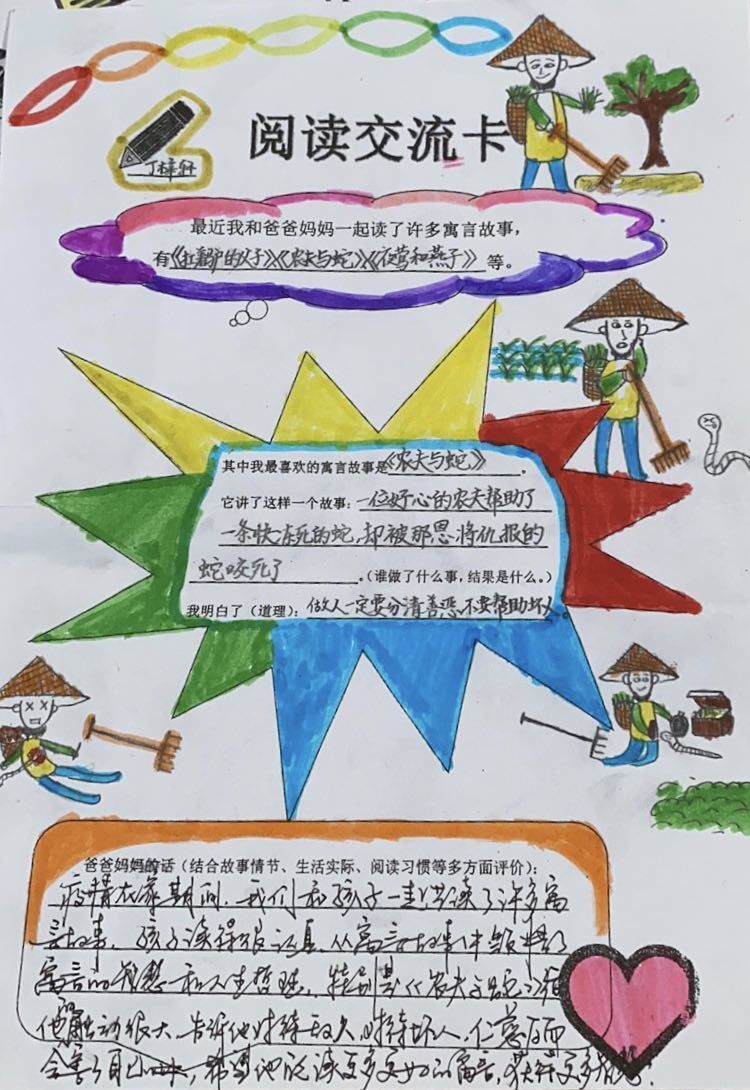 阅读交流卡
丁梓轩
最近我和爸爸妈妈一起读了许多寓言故事，
有《扛翻驴的父子》《农夫与蛇》《夜莺和燕子》等。
其中我最喜欢的寓言故事是《农夫与蛇》。
它讲了这样一个故事：一位好心的农夫帮助了
一条快冻死的蛇，却被那恩将仇报的
蛇咬死了。（谁做了什么事，结果是什么。）
我明白了（道理）：做人一定要分清善恶，不要帮助坏人。
爸爸妈妈的话（结合故事情节、生活实际、阅读习惯等多方面评价）：
疫情在家期间，我们和孩子一起共读了许多寓
言故事，孩子读得很认真，从寓言故事中领悟了
寓言的智慧和人生哲理，特别是《农夫与蛇》
他触动很大，告诉他对待敌人，对待坏人，仁慈反而
会害了自己，希望他说读更多更好的寓言，获得更多